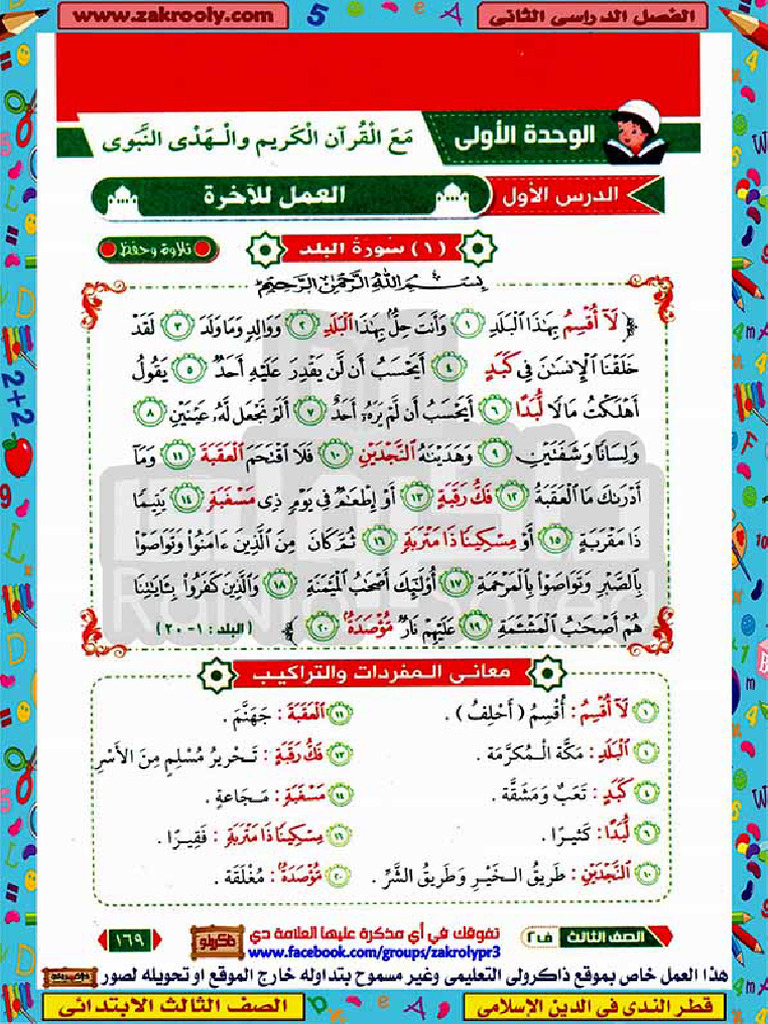 الفصل الدراسى الثانى
www.zakrooly.com
الوحدة الأولى
مَعَ الْقُرآنِ الْكَريمِ والْـهَدْىِ النَّبَوى
الدرس الأول
العمل للآخرة
(١) سورة البلد
تلاوة وحفظ
بِسْمِ اللَّهِ الرَّحْمَٰنِ الرَّحِيمِ
لَآ أُقْسِمُ بِهَٰذَا ٱلْبَلَدِ ١ وَأَنتَ حِلٌّۢ بِهَٰذَا ٱلْبَلَدِ ٢ وَوَالِدٍ وَمَا وَلَدَ ٣ لَقَدْ
خَلَقْنَا ٱلْإِنسَٰنَ فِى كَبَدٍ ٤ أَيَحْسَبُ أَن لَّن يَقْدِرَ عَلَيْهِ أَحَدٌ ٥ يَقُولُ
أَهْلَكْتُ مَالًا لُّبَدًا ٦ أَيَحْسَبُ أَن لَّمْ يَرَهُۥٓ أَحَدٌ ٧ أَلَمْ نَجْعَل لَّهُۥ عَيْنَيْنِ ٨
وَلِسَانًا وَشَفَتَيْنِ ٩ وَهَدَيْنَٰهُ ٱلنَّجْدَيْنِ ١٠ فَلَا ٱقْتَحَمَ ٱلْعَقَبَةَ ١١ وَمَآ
أَدْرَىٰكَ مَا ٱلْعَقَبَةُ ١٢ فَكُّ رَقَبَةٍ ١٣ أَوْ إِطْعَٰمٌ فِى يَوْمٍ ذِى مَسْغَبَةٍ ١٤ يَتِيمًا
ذَا مَقْرَبَةٍ ١٥ أَوْ مِسْكِينًا ذَا مَتْرَبَةٍ ١٦ ثُمَّ كَانَ مِنَ ٱلَّذِينَ ءَامَنُوا۟ وَتَوَاصَوْا۟
بِٱلصَّبْرِ وَتَوَاصَوْا۟ بِٱلْمَرْحَمَةِ ١٧ أُو۟لَٰٓئِكَ أَصْحَٰبُ ٱلْمَيْمَنَةِ ١٨ وَٱلَّذِينَ كَفَرُوا۟ بِـَٔايَٰتِنَا
هُمْ أَصْحَٰبُ ٱلْمَشْـَٔمَةِ ١٩ عَلَيْهِمْ نَارٌ مُّؤْصَدَةٌۢ ٢٠ (البلد: ١-٢٠)
معانى المفردات والتراكيب
١ لَآ أُقْسِمُ: أُقْسِمُ (أَحْلِفُ).
١١ الْعَقَبَةَ: جَهَنَّمَ.
١ الْبَلَدِ: مَكَّةَ الْـمُكَرَّمَةَ.
١٣ فَكُّ رَقَبَةٍ: تَحْرِيرُ مُسْلِمٍ مِنَ الأَسْرِ
٤ كَبَدٍ: تَعَبٌ وَمَشَقَّةٌ.
١٤ مَسْغَبَةٍ: مَجَاعَةٍ.
٦ لُّبَدًا: كَثِيرًا.
١٦ مِسْكِينًا ذَا مَتْرَبَةٍ: فَقِيرًا.
١٠ النَّجْدَيْنِ: طَرِيقُ الْخَيْرِ وَطَرِيقُ الشَّرِّ.
٢٠ مُؤْصَدَةٌ: مُغْلَقَةٌ.
الصف الثالث ف٢
تفوقك في أي مذكرة عليها العلامة دي
ذاكرولى
١٦٩
www.facebook.com/groups/zakrolypr3
هذا العمل خاص بموقع ذاكرولى التعليمى وغير مسموح بتداوله خارج الموقع او تحويله لصور
قطر الندى فى الدين الإسلامى
الصف الثالث الابتدائى